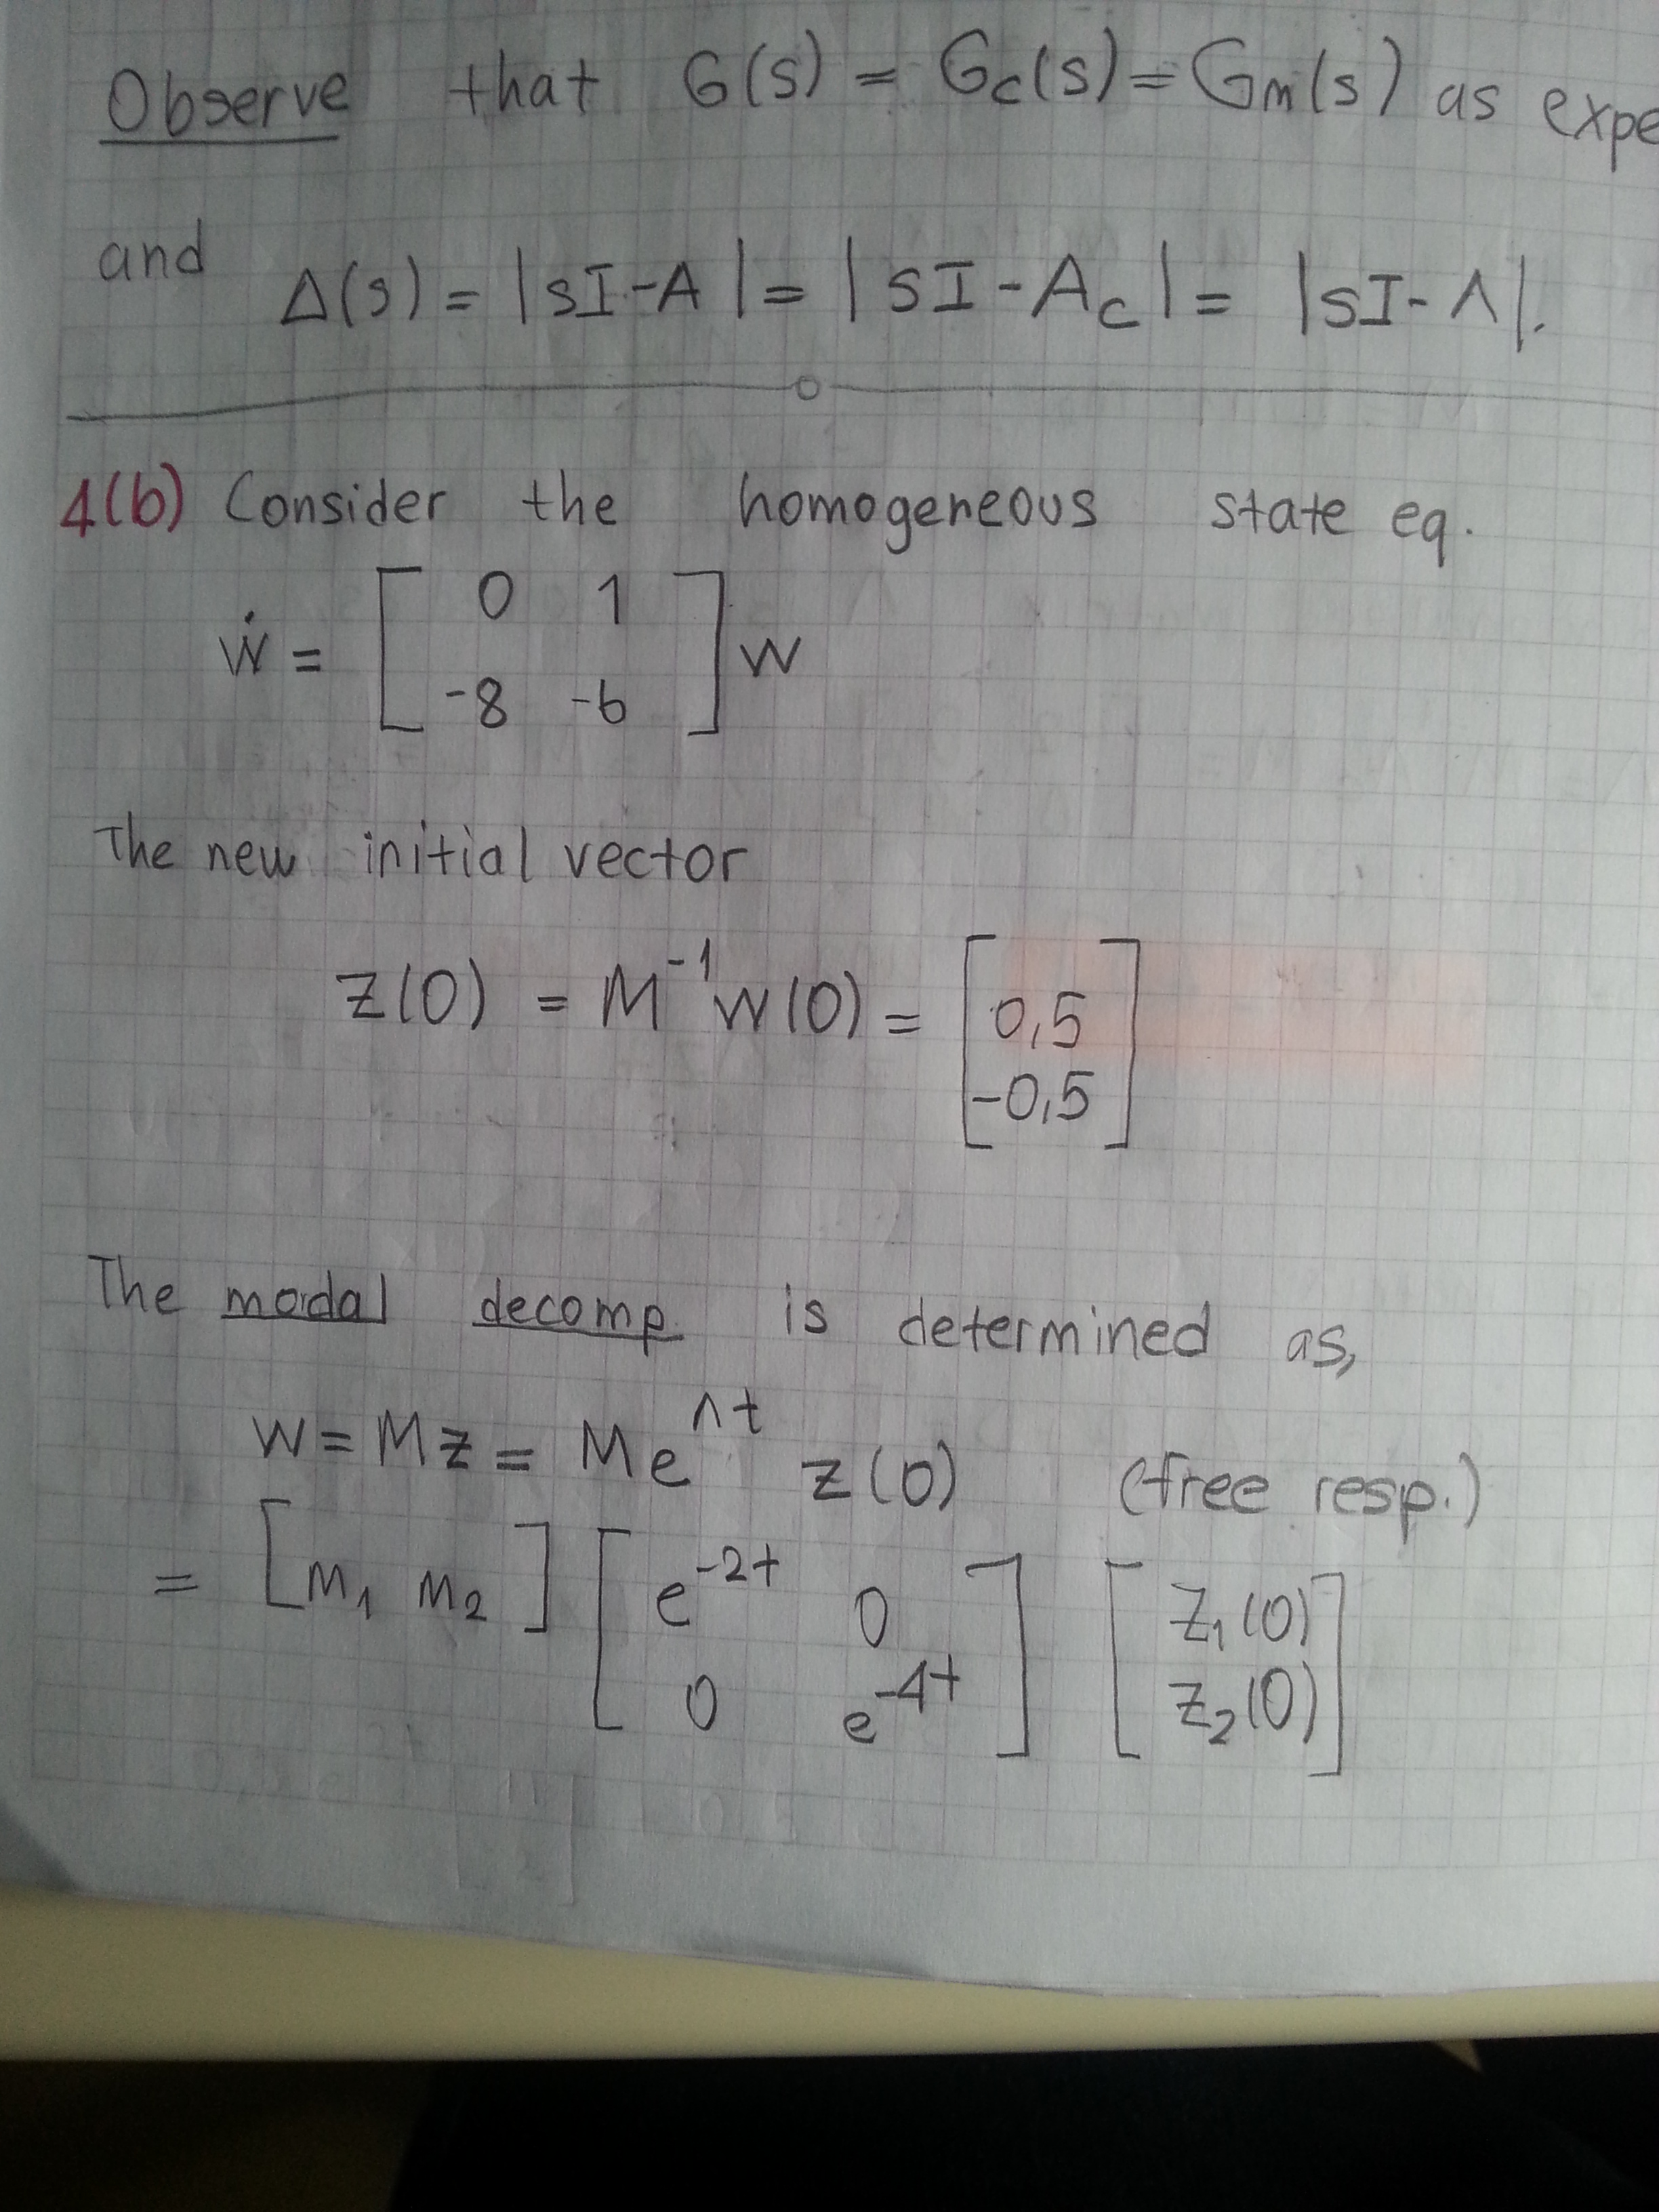 Observe that G(s) = Gc(s) = Gm(s) as expe
and Δ(s) = |sI-A| = |sI-Ac| = |sI-Λ|.
4(b) Consider the homogeneous state eq.
ẇ = [ 0 1 ; -8 -6 ] w
The new initial vector
z(0) = M⁻¹w(0) = [ 0,5 ; -0,5 ]
The modal decomp is determined as,
w = Mz = Me^Λt z(0) (free resp.)
= [m₁ m₂] [ e^-2t 0 ; 0 e^-4t ] [ z₁(0) ; z₂(0) ]